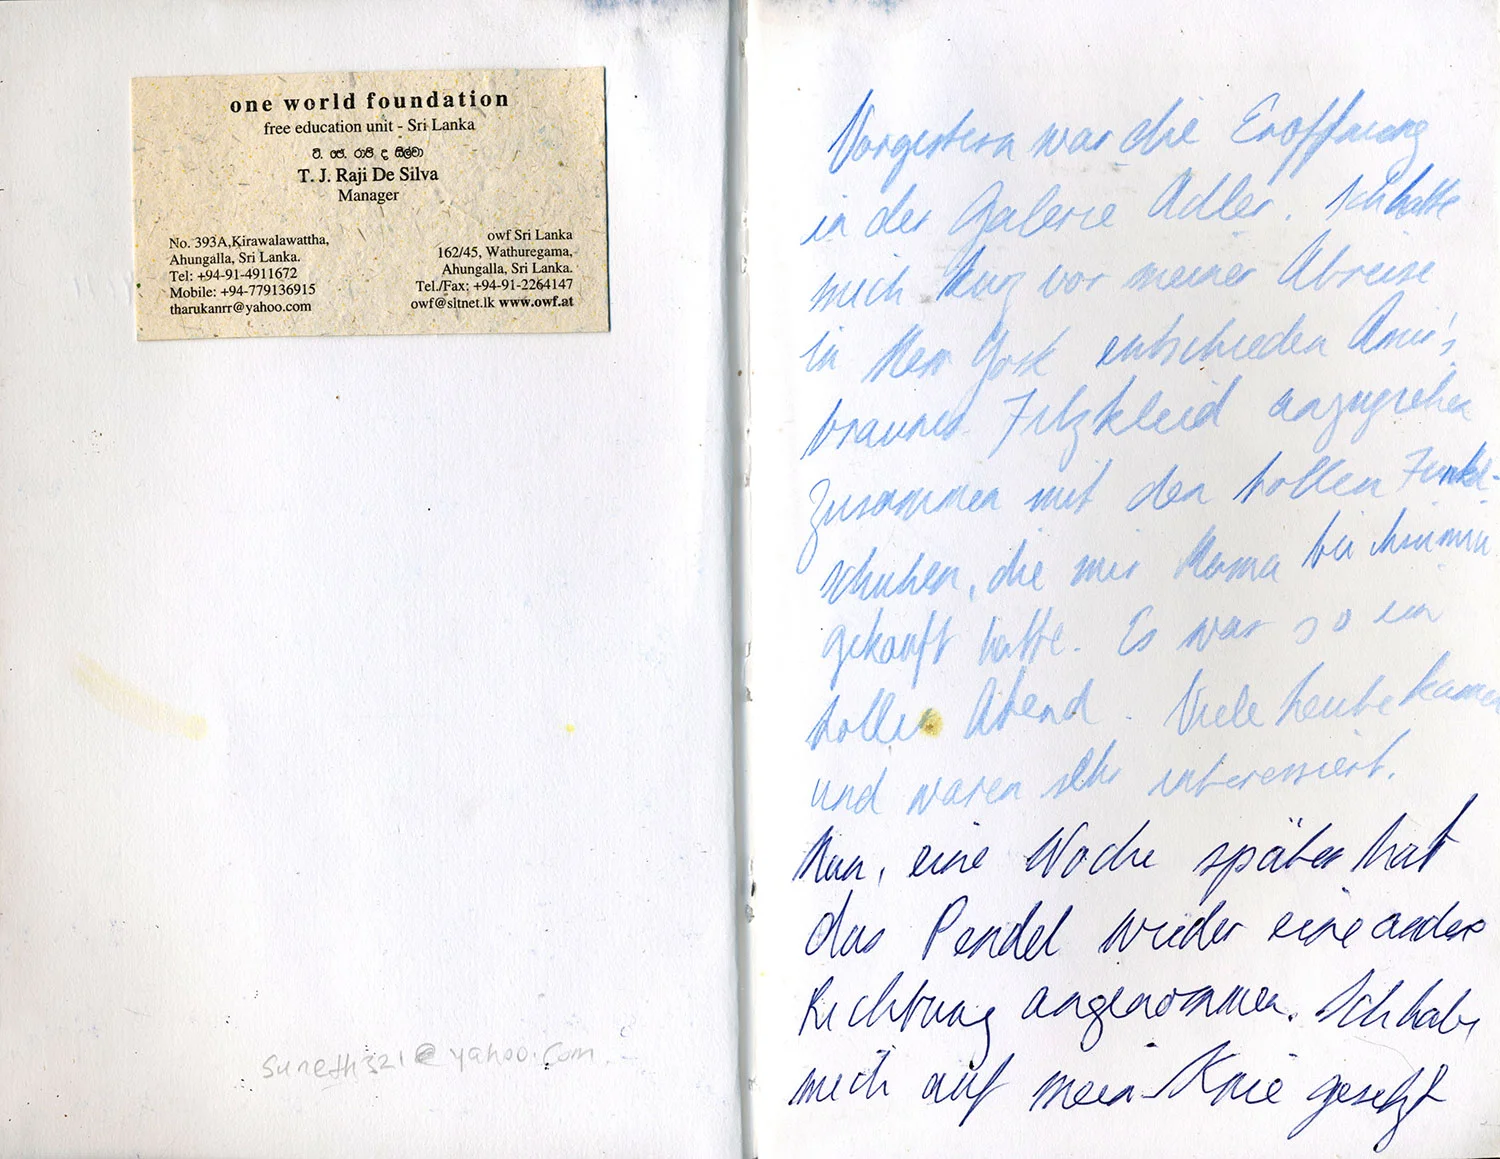 one world foundation
free education unit - Sri Lanka
ටී. ජේ. රාජි ද සිල්වා
T. J. Raji De Silva
Manager
No. 393A,Kirawalawattha,
Ahungalla, Sri Lanka.
Tel: +94-91-4911672
Mobile: +94-779136915
tharukanrr@yahoo.com
owf Sri Lanka
162/45, Wathuregama,
Ahungalla, Sri Lanka.
Tel./Fax: +94-91-2264147
owf@sltnet.lk www.owf.at
suneth321@yahoo.com
Vorgestern war die Eröffnung
in der Galerie Adler. Ich hatte
mich kurz vor meiner Abreise
in New York entschieden
braunes Filzkleid anzuziehen
zusammen mit den tollen Funkel-
schuhen, die mir Mama bei
gekauft hatte. Es war so ein
toller Abend. Viele Leute kamen
und waren sehr interessiert.
Nun, eine Woche später hat
das Pendel wieder eine andere
Richtung angenommen. Ich habe
mich auf mein Knie gesetzt